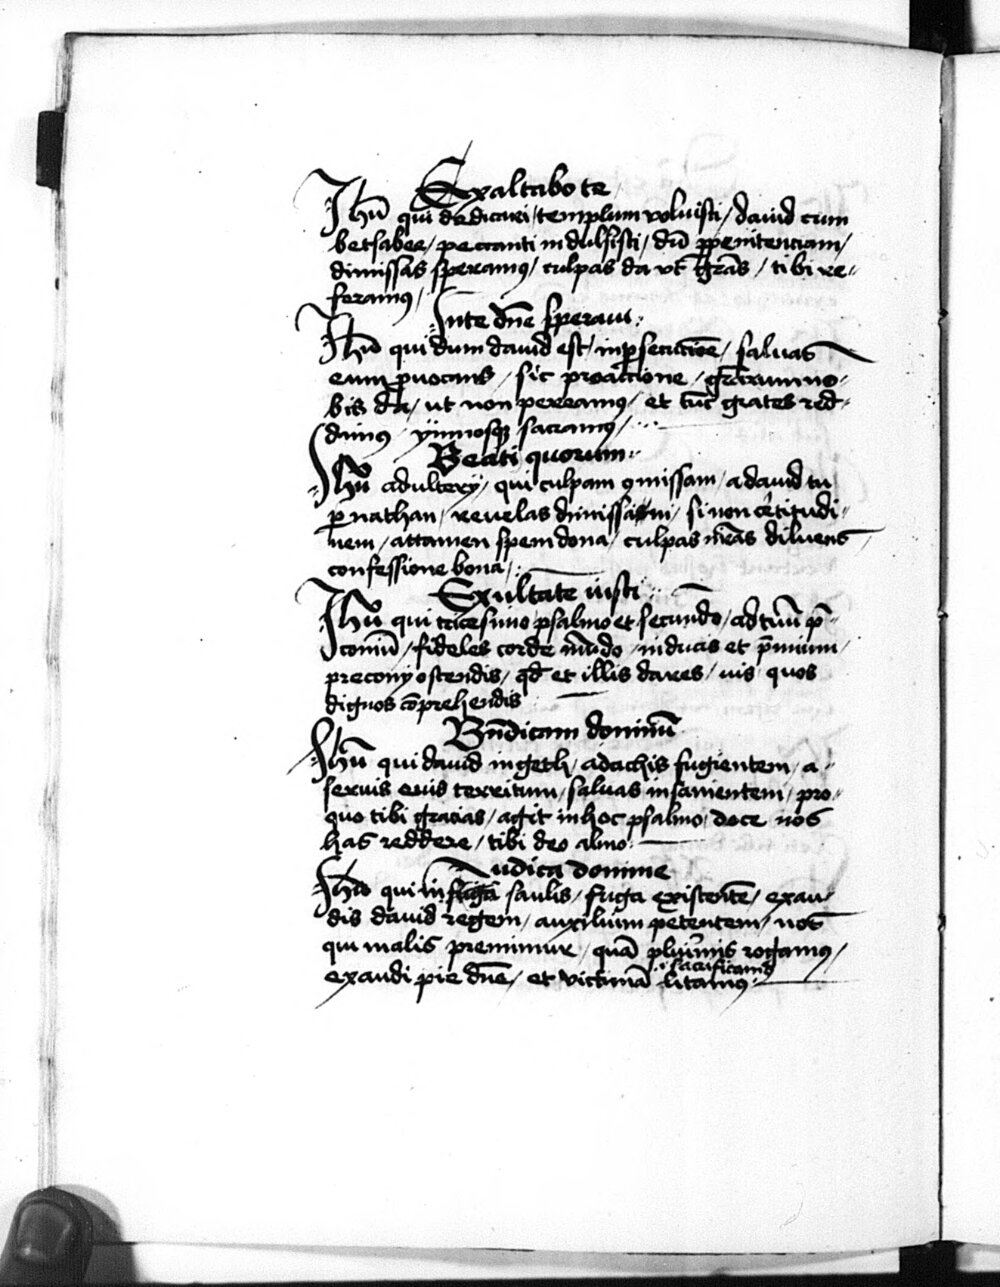 Exaltabo te
Jhū qui dedicari / templum voluisti / dauid cum
betsabee / peccanti indulsisti / dū p penitenciam /
dimissas speramus / culpas da vt grās / tibi re-
feramus /
Inte dn̄e speraui :
Jhū qui dum dauid est / in persecucione / saluas
eum prouocans / sic pro accione / graxarum no-
bis da / ut non pereamus / et tūc grates red-
dimus / ymnosque sacramus /
Beati quorum
Jhū adulterij / qui culpam commissam / a dauid tu
per nathan / reuelas dimissam / si non certitudi-
nem / attamen spem dona / culpas nr̄as diluens /
confessione bona /
Exultate iusti
Jhū qui tricesimo psalmo et secundo / ad tuū p̄-
coniū / fideles corde mūdo / inducis et p̄mium /
preconij ostendis / qd et illis dares / uis quos
dignos cōprehendis
Bn̄dicam dominū
Jhū qui dauid in geth / ad achis fugientem / a
seruis eius territum / saluas insanientem / pro
quo tibi gracias / agit in hoc psalmo / doce nos
has reddere / tibi deo almo
Judica domine
Jhū qui in fuga saulis / fuga existente / exau-
dis dauid regem / auxilium petentem / nos
qui malis premimur / quā plurimis rogamus /
sacrificando
exaudi pie dn̄e / et victimā litamus